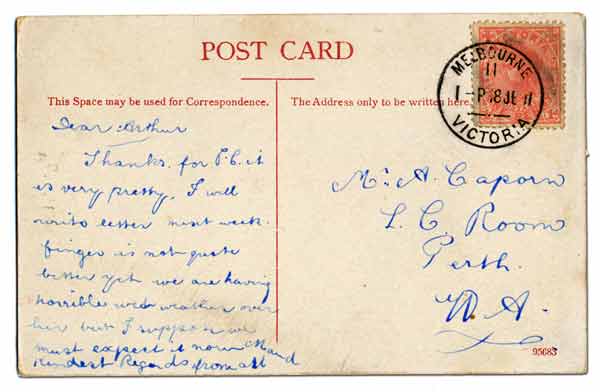 POST CARD
MELBOURNE
11
1-P 8 JE 11
VICTORIA
This Space may be used for Correspondence.
The Address only to be written here.
Dear Arthur
Thanks for P.C. it
is very pretty, I will
write letter next week.
finger is not quite
better yet we are having
horrible weather over
her but I suppose we
must expect it now
Kindest Regards from all
Mr. A. Caporn
L. C. Room
Perth.
W. A.
95683